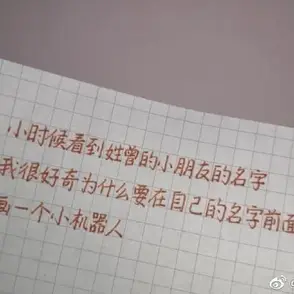 小时候看到姓曾的小朋友的名字
我很好奇为什么要在自己的名字前面
画一个小机器人